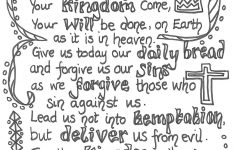 Your Kingdom Come,
Your Will be done, on Earth
as it is in heaven.
Give us today our daily bread
and forgive us our Sins
as we forgive those who
sin against us.
Lead us not into temptation,
but deliver us from evil.